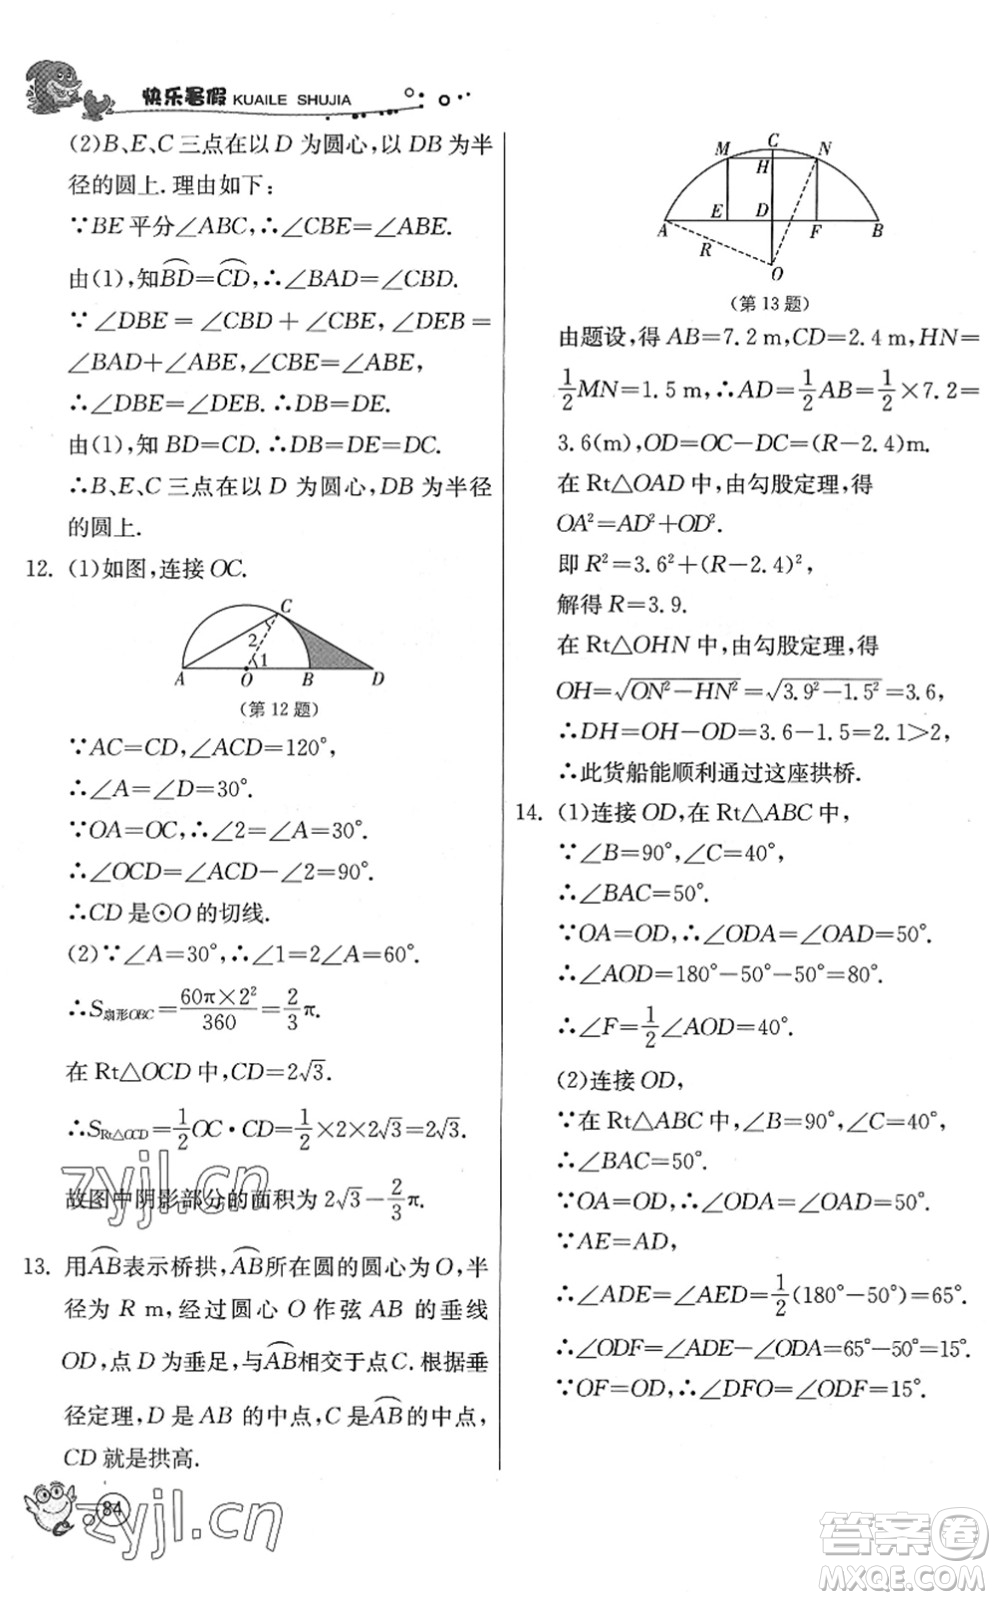 快乐暑假 KUAILE SHUJIA
(2)B、E、C 三点在以 D 为圆心,以 DB 为半
径的圆上.理由如下:
∵BE 平分∠ABC,∴∠CBE=∠ABE.
由(1),知$\overset{\frown}{BD}$=$\overset{\frown}{CD}$,∴∠BAD=∠CBD.
∵∠DBE=∠CBD+∠CBE,∠DEB=
∠BAD+∠ABE,∠CBE=∠ABE,
∴∠DBE=∠DEB.∴DB=DE.
由(1),知 BD=CD.∴DB=DE=DC.
∴B、E、C 三点在以 D 为圆心,DB 为半径
的圆上.
12. (1)如图,连接 OC.
C
2
1
A O B D
(第 12 题)
∵AC=CD,∠ACD=120°,
∴∠A=∠D=30°.
∵OA=OC,∴∠2=∠A=30°.
∴∠OCD=∠ACD-∠2=90°.
∴CD 是⊙O 的切线.
(2)∵∠A=30°,∴∠1=2∠A=60°.
∴$S_{扇形OBC}=\frac{60π×2^2}{360}=\frac{2}{3}$π.
在 Rt△OCD 中,CD=2√3.
∴$S_{Rt△OCD}=\frac{1}{2}$OC·CD=$\frac{1}{2}$×2×2√3=2√3.
故图中阴影部分的面积为 2√3-$\frac{2}{3}$π.
13. 用$\overset{\frown}{AB}$表示桥拱,$\overset{\frown}{AB}$所在圆的圆心为 O,半
径为 R m,经过圆心 O 作弦 AB 的垂线
OD,点 D 为垂足,与$\overset{\frown}{AB}$相交于点 C.根据垂
径定理,D 是 AB 的中点,C 是$\overset{\frown}{AB}$的中点,
CD 就是拱高.
M C N
H
A E D F B
R
O
(第 13 题)
由题设,得 AB=7.2 m,CD=2.4 m,HN=
$\frac{1}{2}$MN=1.5 m,∴AD=$\frac{1}{2}$AB=$\frac{1}{2}$×7.2=
3.6(m),OD=OC-DC=(R-2.4)m.
在 Rt△OAD 中,由勾股定理,得
OA²=AD²+OD².
即 R²=3.6²+(R-2.4)²,
解得 R=3.9.
在 Rt△OHN 中,由勾股定理,得
OH=$\sqrt{ON^2-HN^2}$=$\sqrt{3.9^2-1.5^2}$=3.6,
∴DH=OH-OD=3.6-1.5=2.1>2,
∴此货船能顺利通过这座拱桥.
14. (1)连接 OD,在 Rt△ABC 中,
∵∠B=90°,∠C=40°,
∴∠BAC=50°.
∵OA=OD,∴∠ODA=∠OAD=50°.
∴∠AOD=180°-50°-50°=80°.
∴∠F=$\frac{1}{2}$∠AOD=40°.
(2)连接 OD,
∵在 Rt△ABC 中,∠B=90°,∠C=40°,
∴∠BAC=50°.
∵OA=OD,∴∠ODA=∠OAD=50°.
∵AE=AD,
∴∠ADE=∠AED=$\frac{1}{2}$(180°-50°)=65°.
∴∠ODF=∠ADE-∠ODA=65°-50°=15°.
∵OF=OD,∴∠DFO=∠ODF=15°.
84
zyjl.cn
zyjl.cn
答案卷
MXQE.COM